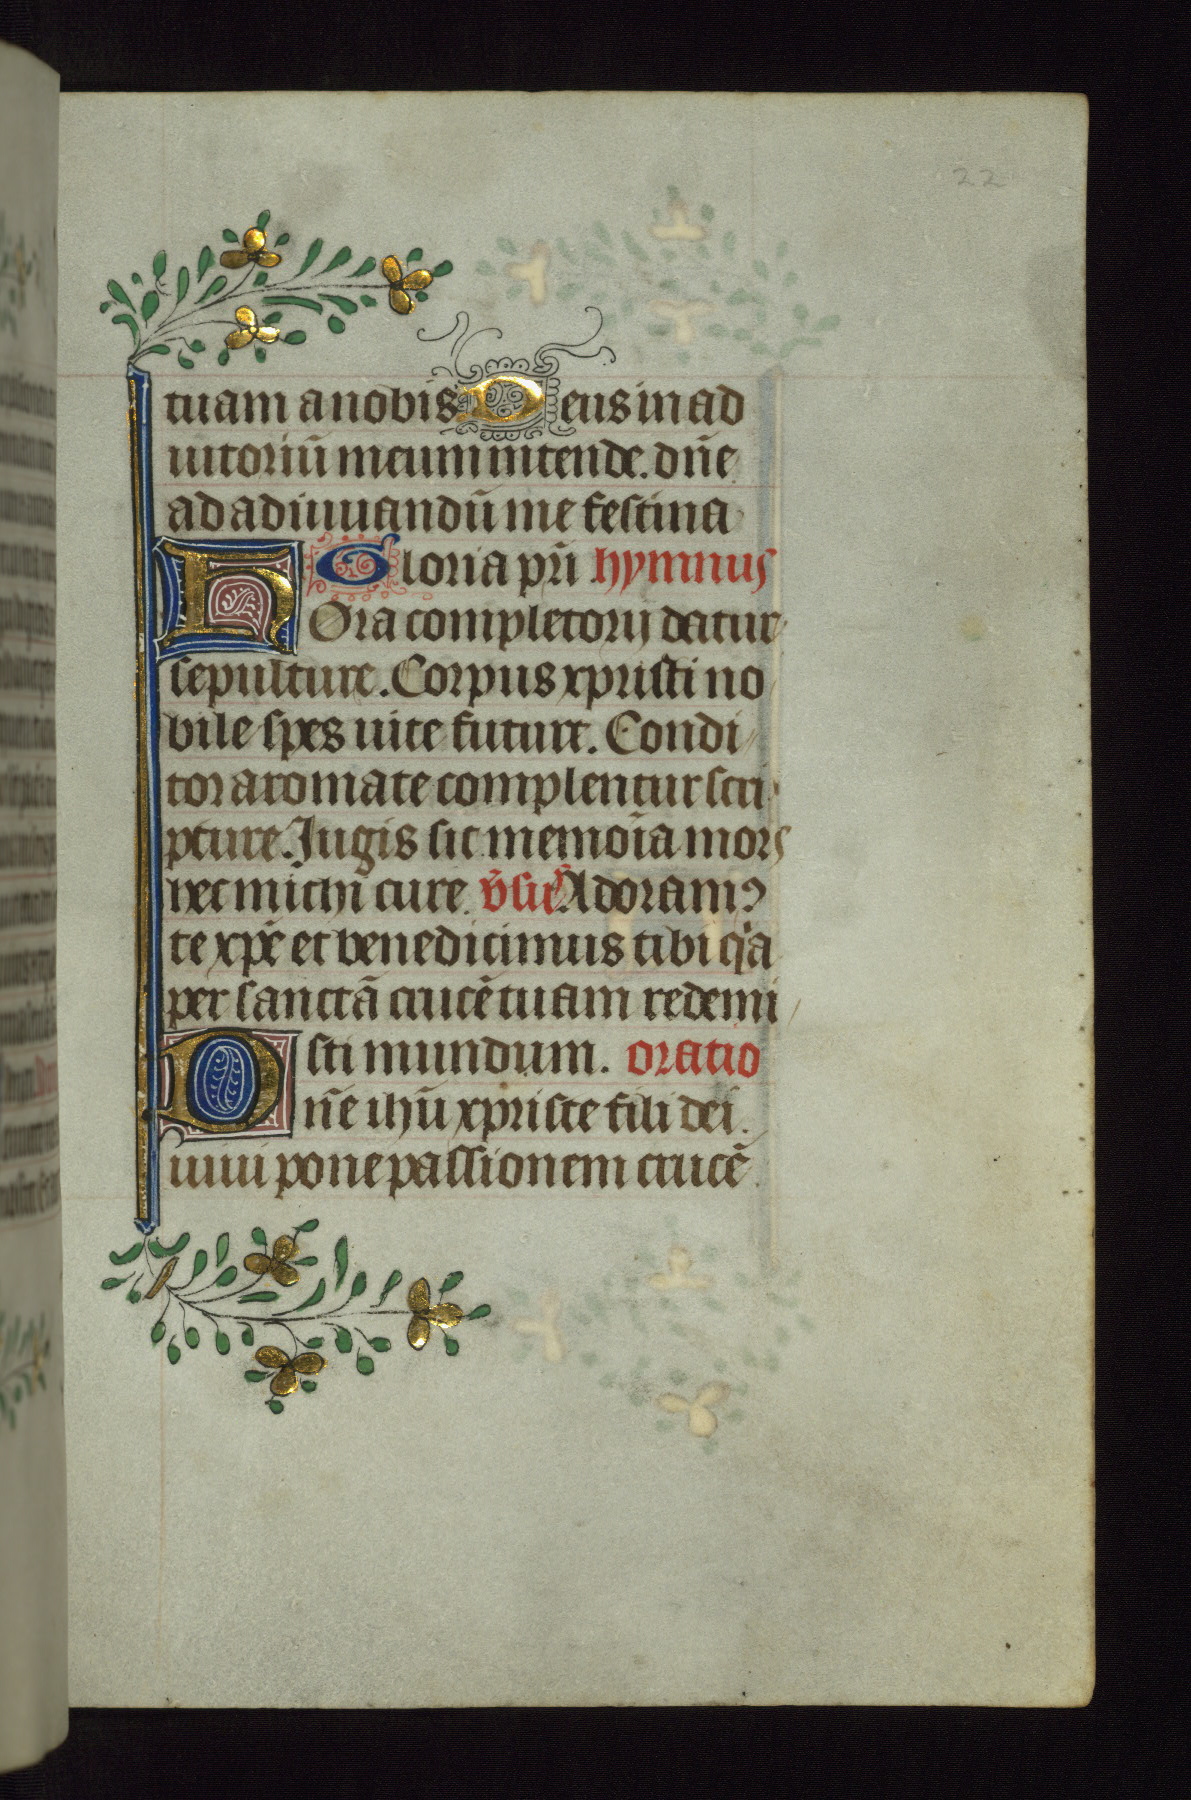 22
tuam a nobis Deus in ad
iutoriū meum intende. dn̄e
ad adiuuandū me festina
Gloria pr̄i hymnus
Hora completorij datur
sepulture. Corpus xpristi no
bile spes uite future. Condi
tor aromate complentur scri
pture. Jugis sit memoīa mors
hec michi cure. v̄sus Adoramꝰ
te xp̄e et benedicimus tibi qͥa
per sanctā crucē tuam redemi
sti mundum. oratio
Dn̄e ihū xpriste fili dei
uiui pone passionem crucē